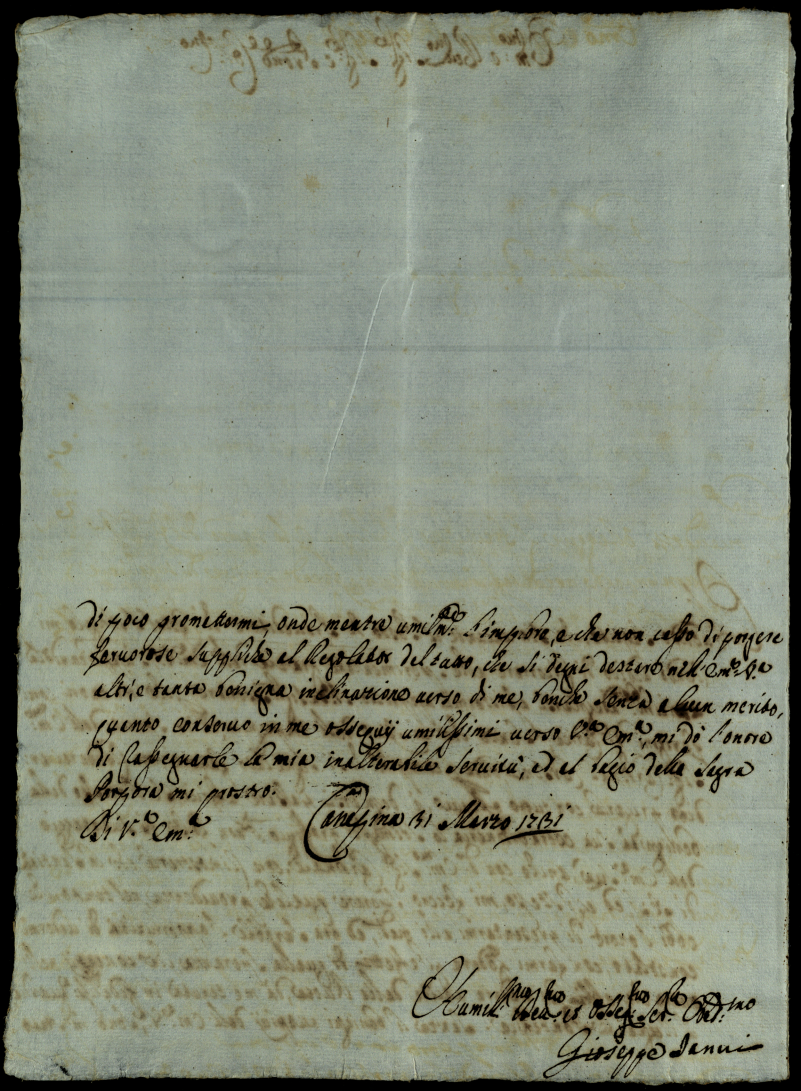 di poco promettermi; onde mentre umilm.te l'imploro, e che non cesso di porgere
fervorose suppliche al Regolator del tutto, che si degni destare nell'Em.za V.a
altr, e tanta benigna inclinazione verso di me, benche senza alcun merito,
quanto conservo in me ossequij umilissimi verso V.ra Em.za, mi dò l'onore
di rassegnarle la mia inalterabile servitù, ed al bagio della Sagra
Porpora mi prostro.
Di V.ra Em.za Canepina 31 Marzo 1731
Humil.mo Dev.mo et Osseq.mo Ser.re Obbl.mo
Giuseppe Janni